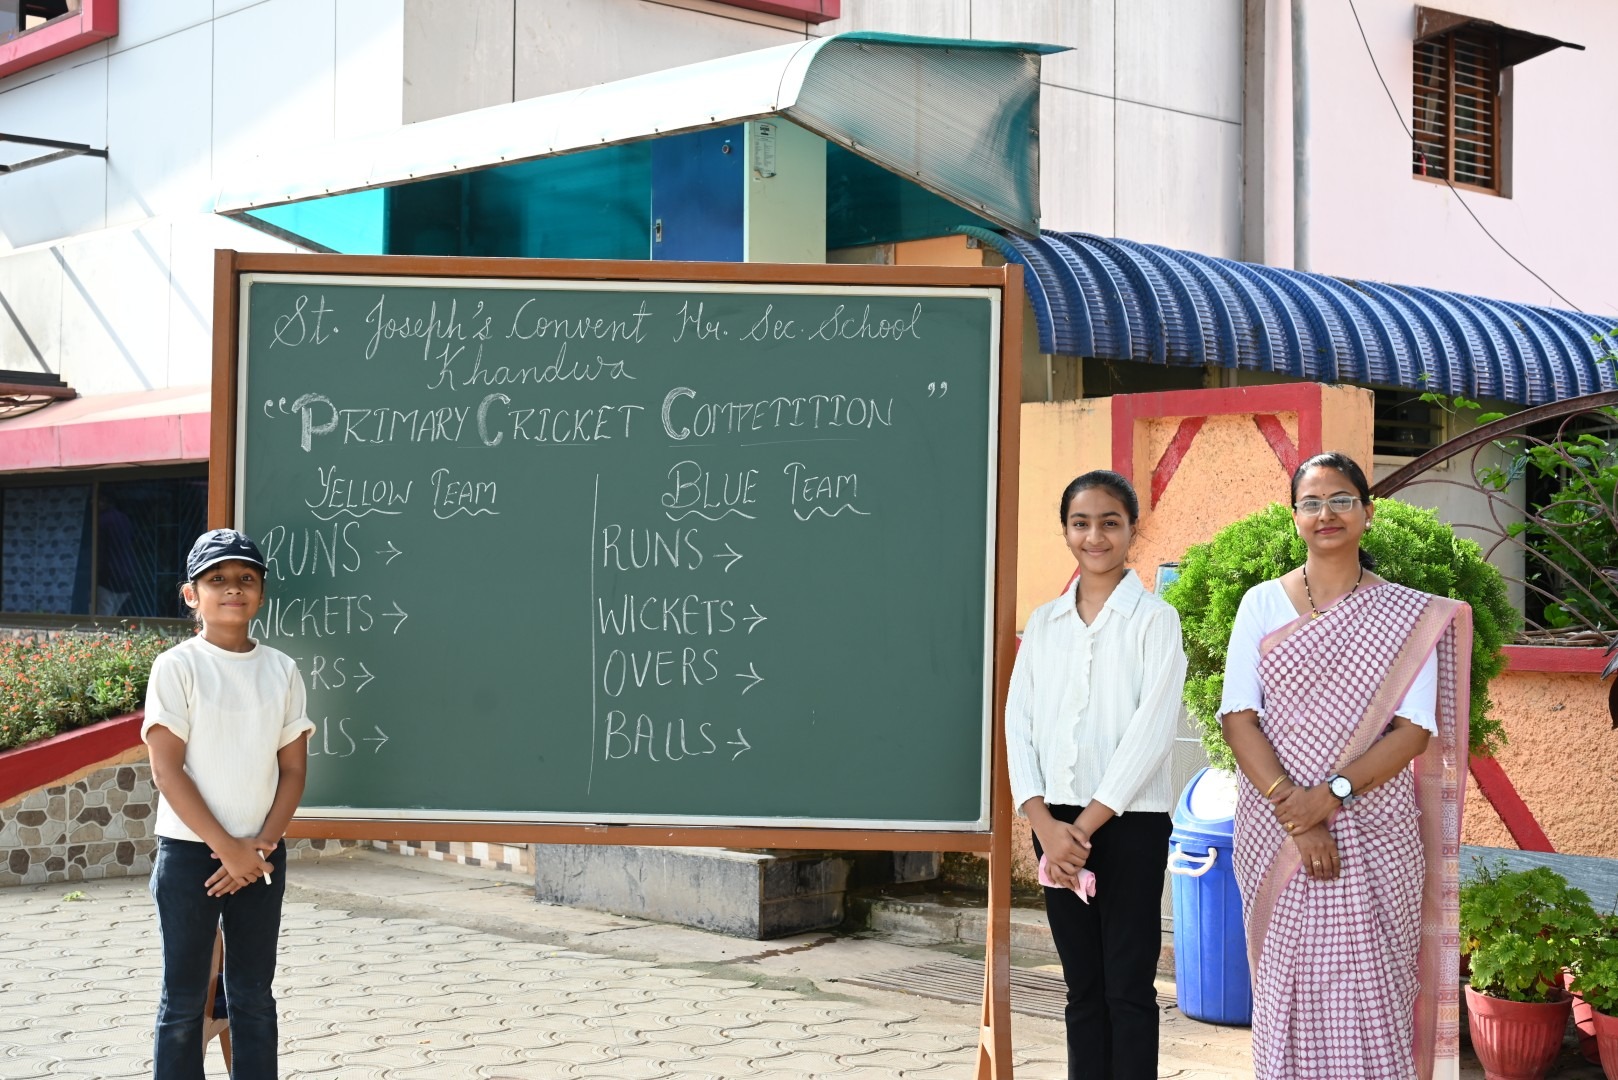 St. Joseph's Convent Hr. Sec. School
Khandwa
“PRIMARY CRICKET COMPETITION”
YELLOW TEAM
RUNS →
WICKETS →
ERS →
LLS →
BLUE TEAM
RUNS →
WICKETS →
OVERS →
BALLS →